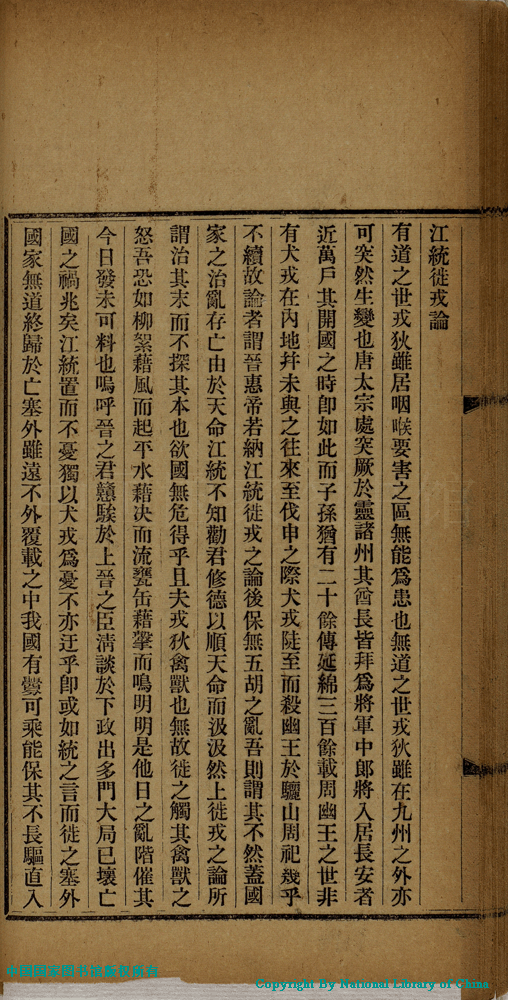 江統徙戎論
有道之世戎狄雖居咽喉要害之區無能爲患也無道之世戎狄雖在九州之外亦
可突然生變也唐太宗處突厥於靈諸州其酋長皆拜爲將軍中郎將入居長安者
近萬戶其開國之時卽如此而子孫猶有二十餘傳延綿三百餘載周幽王之世非
有犬戎在內地幷未與之往來至伐申之際犬戎陡至而殺幽王於驪山周祀幾乎
不續故論者謂晉惠帝若納江統徙戎之論後保無五胡之亂吾則謂其不然蓋國
家之治亂存亡由於天命江統不知勸君修德以順天命而汲汲然上徙戎之論所
謂治其末而不探其本也欲國無危得乎且夫戎狄禽獸也無故徙之觸其禽獸之
怒吾恐如柳絮藉風而起平水藉决而流甕缶藉擊而鳴明明是他日之亂階催其
今日發未可料也嗚呼晉之君戇騃於上晉之臣淸談於下政出多門大局已壞亡
國之禍兆矣江統置而不憂獨以犬戎爲憂不亦迂乎卽或如統之言而徙之塞外
國家無道終歸於亡塞外雖遠不外覆載之中我國有釁可乘能保其不長驅直入
中国国家图书馆版权所有
Copyright By National Library of China